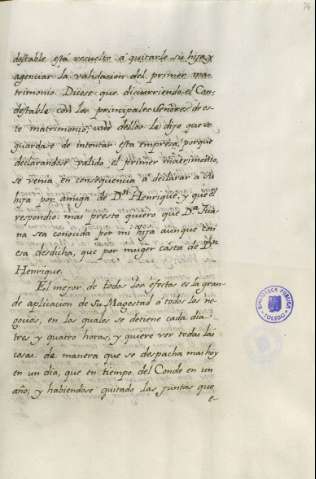 destable está resuelto a quitarle su hija, y
agenciar la validacion del primer ma-
trimonio. Dicese que discurriendo el Con-
destable con los principales Señores de es-
te matrimonio, uno dellos le dijo que se
guardase de intentar esta empresa, porque
declarandose valido el primer matrimonio,
se venia en consequencia a declarar a su
hija por amiga de Dn. Henrique, y que
respondio: mas presto quiero que Da. Jua-
na sea conocida por mi hija aunque con
esta desdicha, que por muger casta de Dn.
Henrique.
El mejor de todos los efectos es la gran-
de aplicacion de Su Magestad a todos los ne-
gocios, en los quales se detiene cada dia
tres y quatro horas, y quiere ver todas las
cosas de manera que se despacha mas hoy
en un dia, que en tiempo del Conde en un
año, y habiendose quitado las juntas que
BIBLIOTECA PUBLICA
TOLEDO